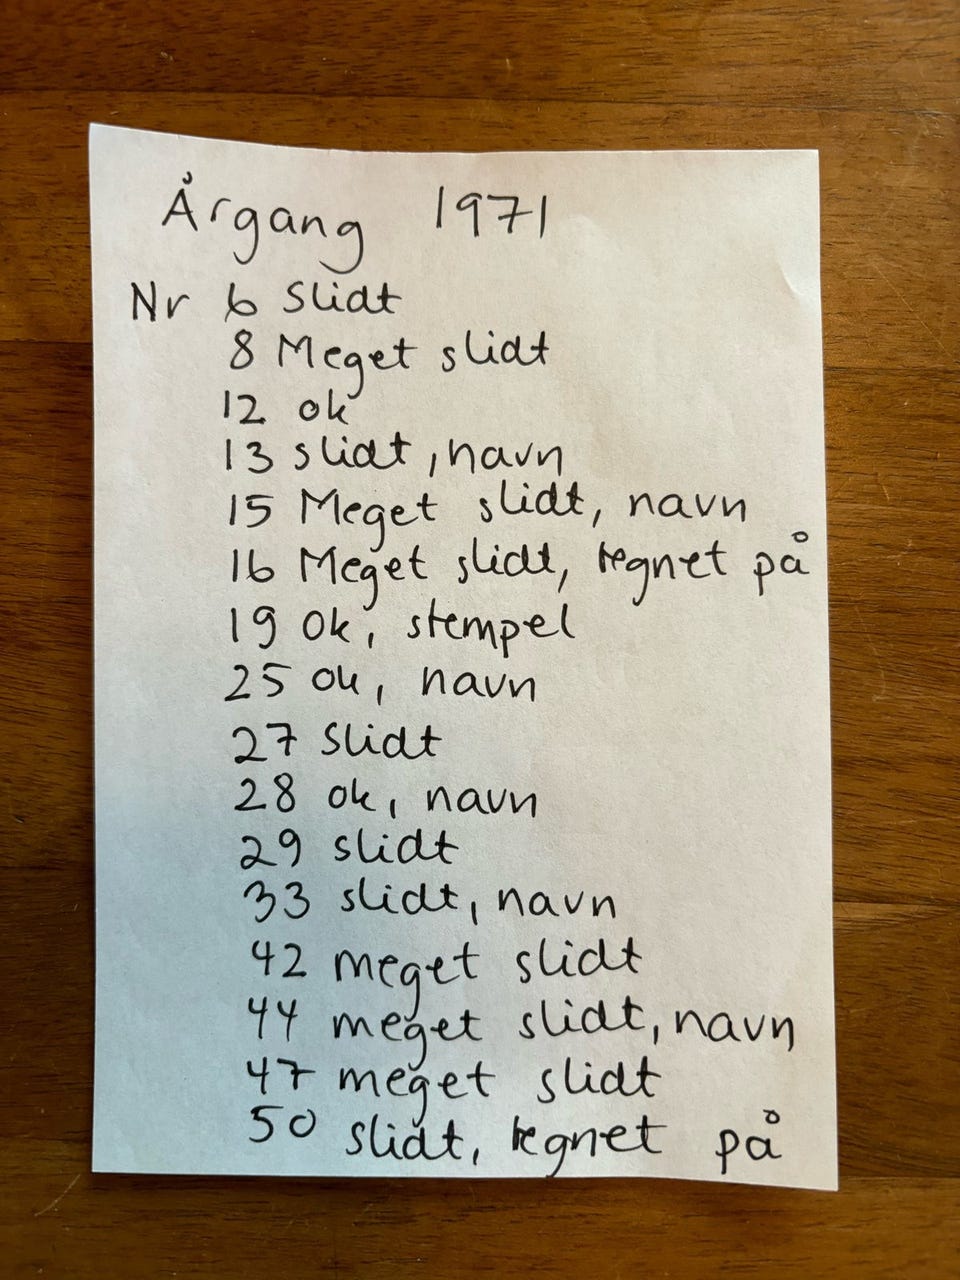 Årgang 1971
Nr 6 Slidt
8 Meget slidt
12 ok
13 slidt, navn
15 Meget slidt, navn
16 Meget slidt, tegnet på
19 Ok, stempel
25 ok, navn
27 Slidt
28 ok, navn
29 slidt
33 slidt, navn
42 meget slidt
44 meget slidt, navn
47 meget slidt
50 slidt, tegnet på